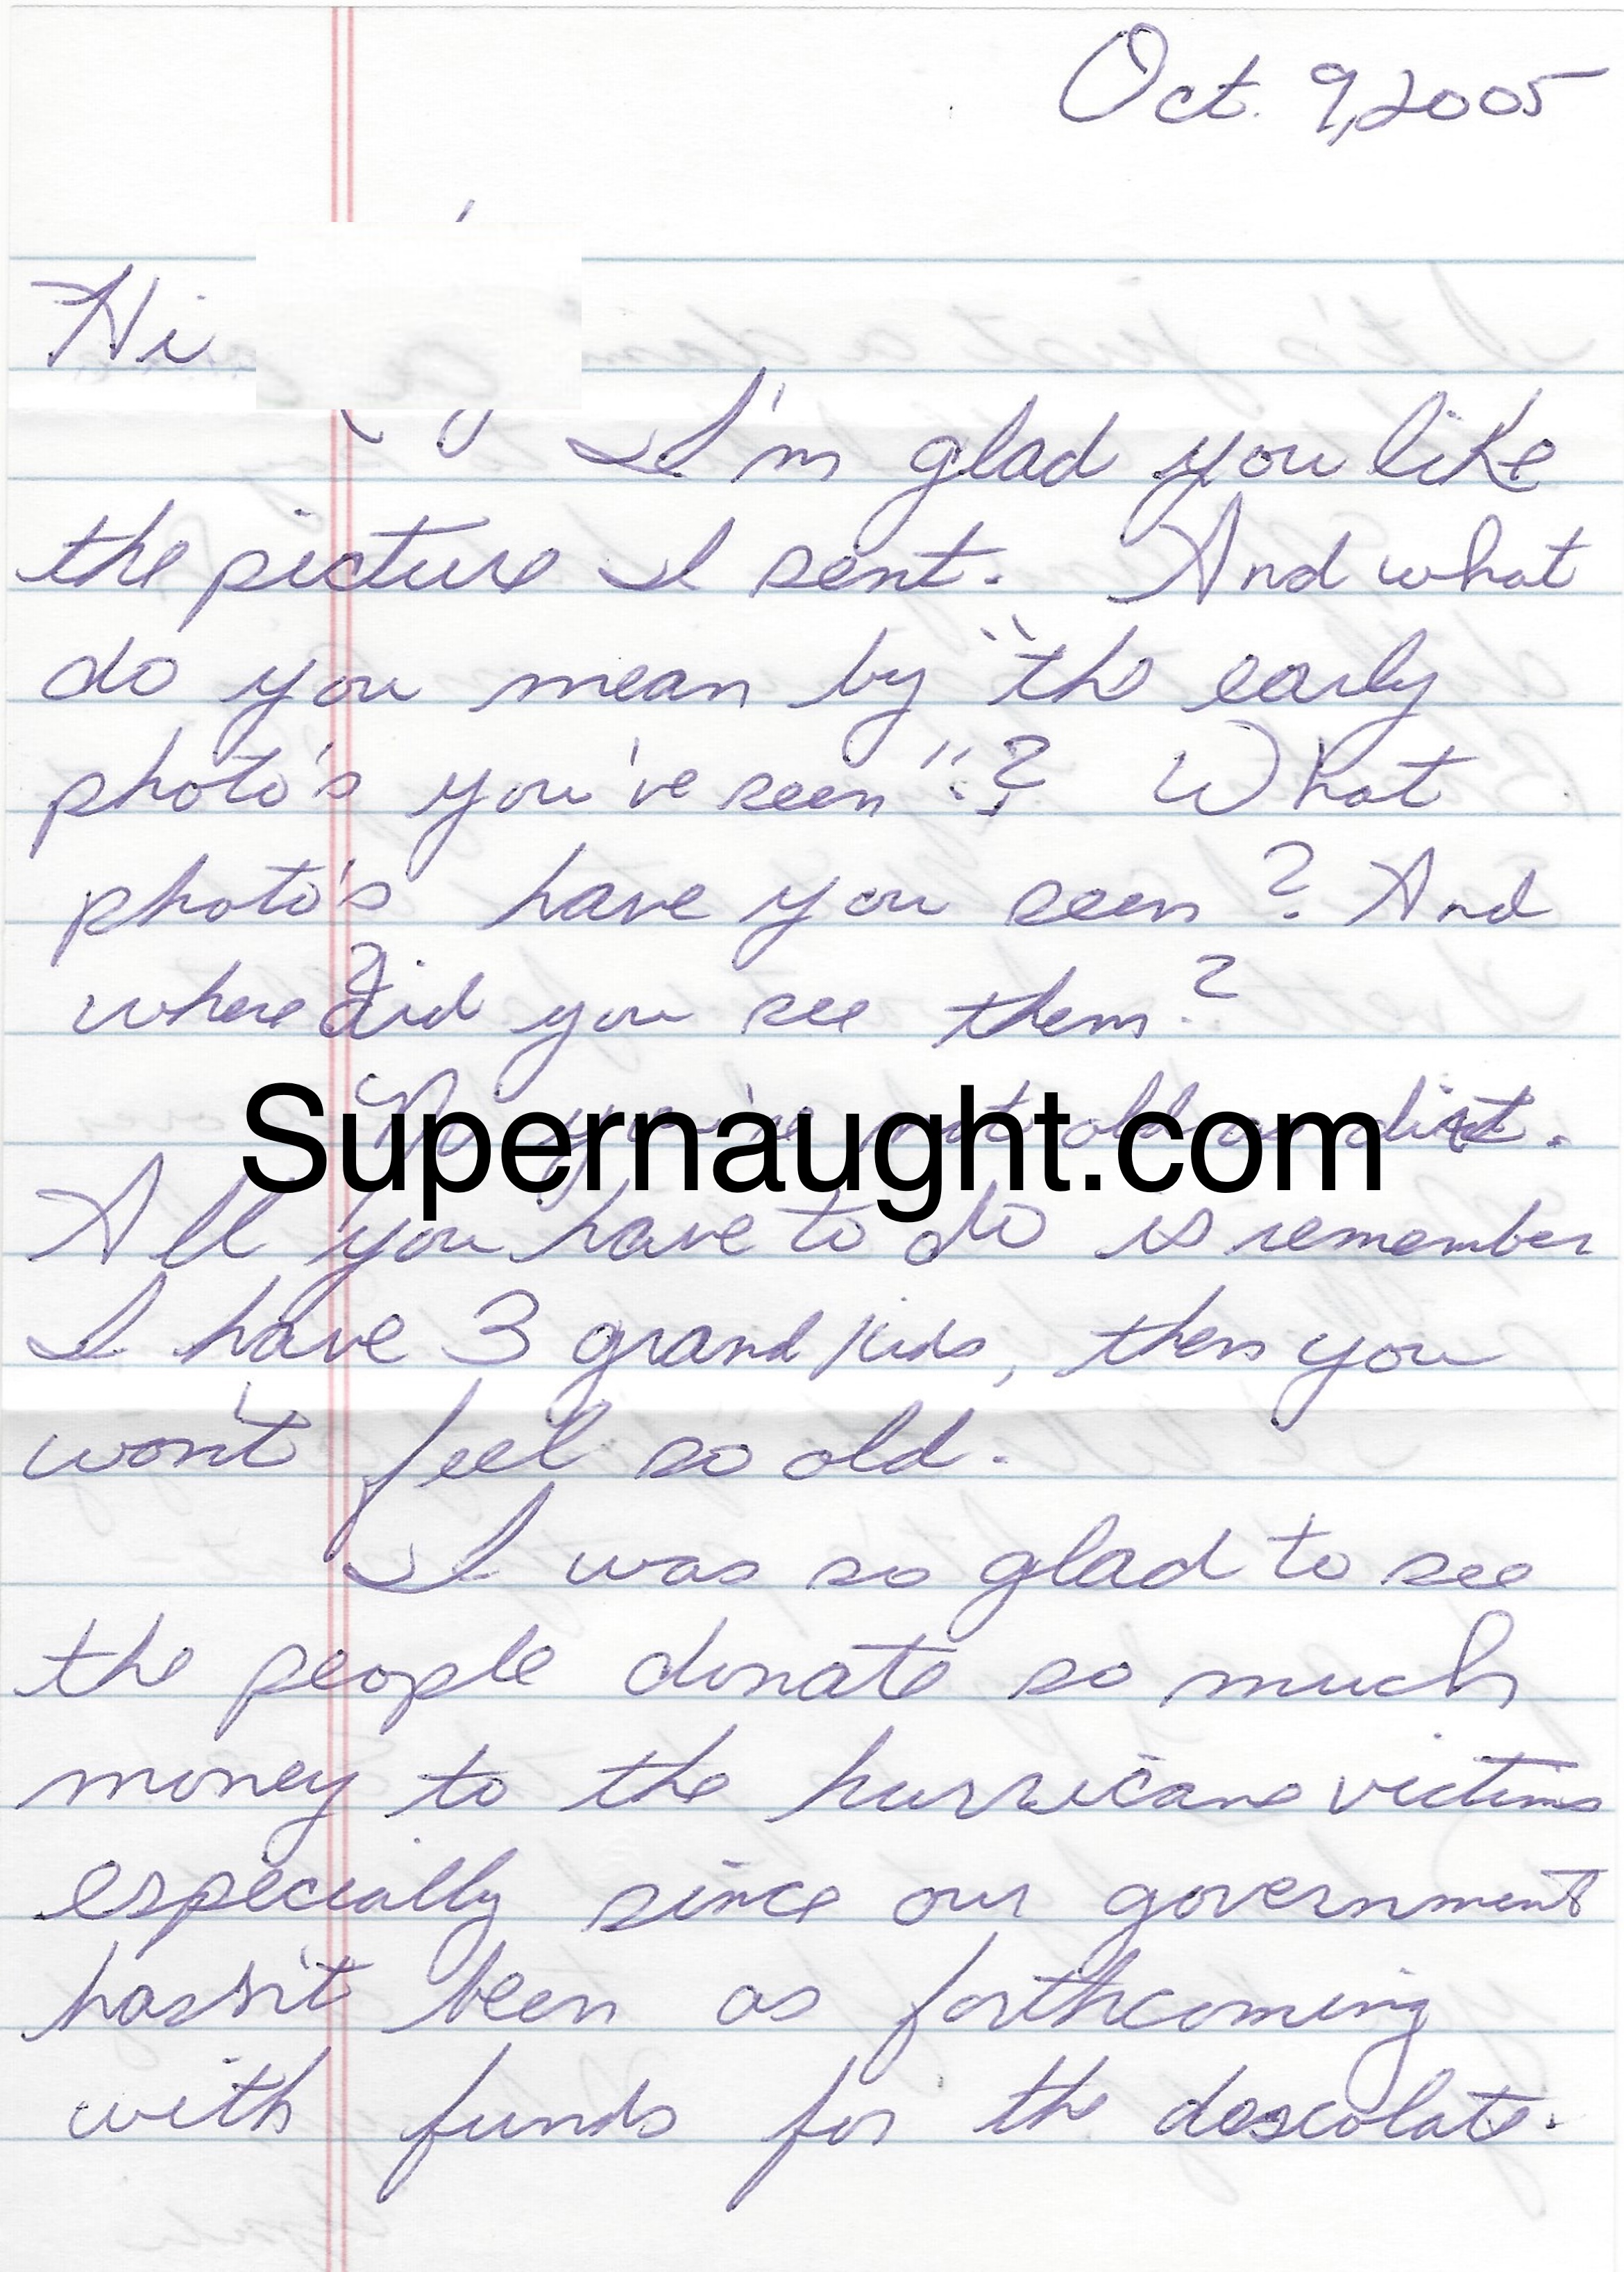 Oct. 9, 2005
Hi
I'm glad you like
the picture I sent. And what
do you mean by "the early
photo's you've seen"? What
photo's have you seen? And
where did you see them?
No you're not old as dirt.
Supernaught.com
All you have to do is remember
I have 3 grand kids, then you
won't feel so old.
I was so glad to see
the people donate so much
money to the hurricane victims
especially since our government
hasn't been as forthcoming
with funds for the descolate.